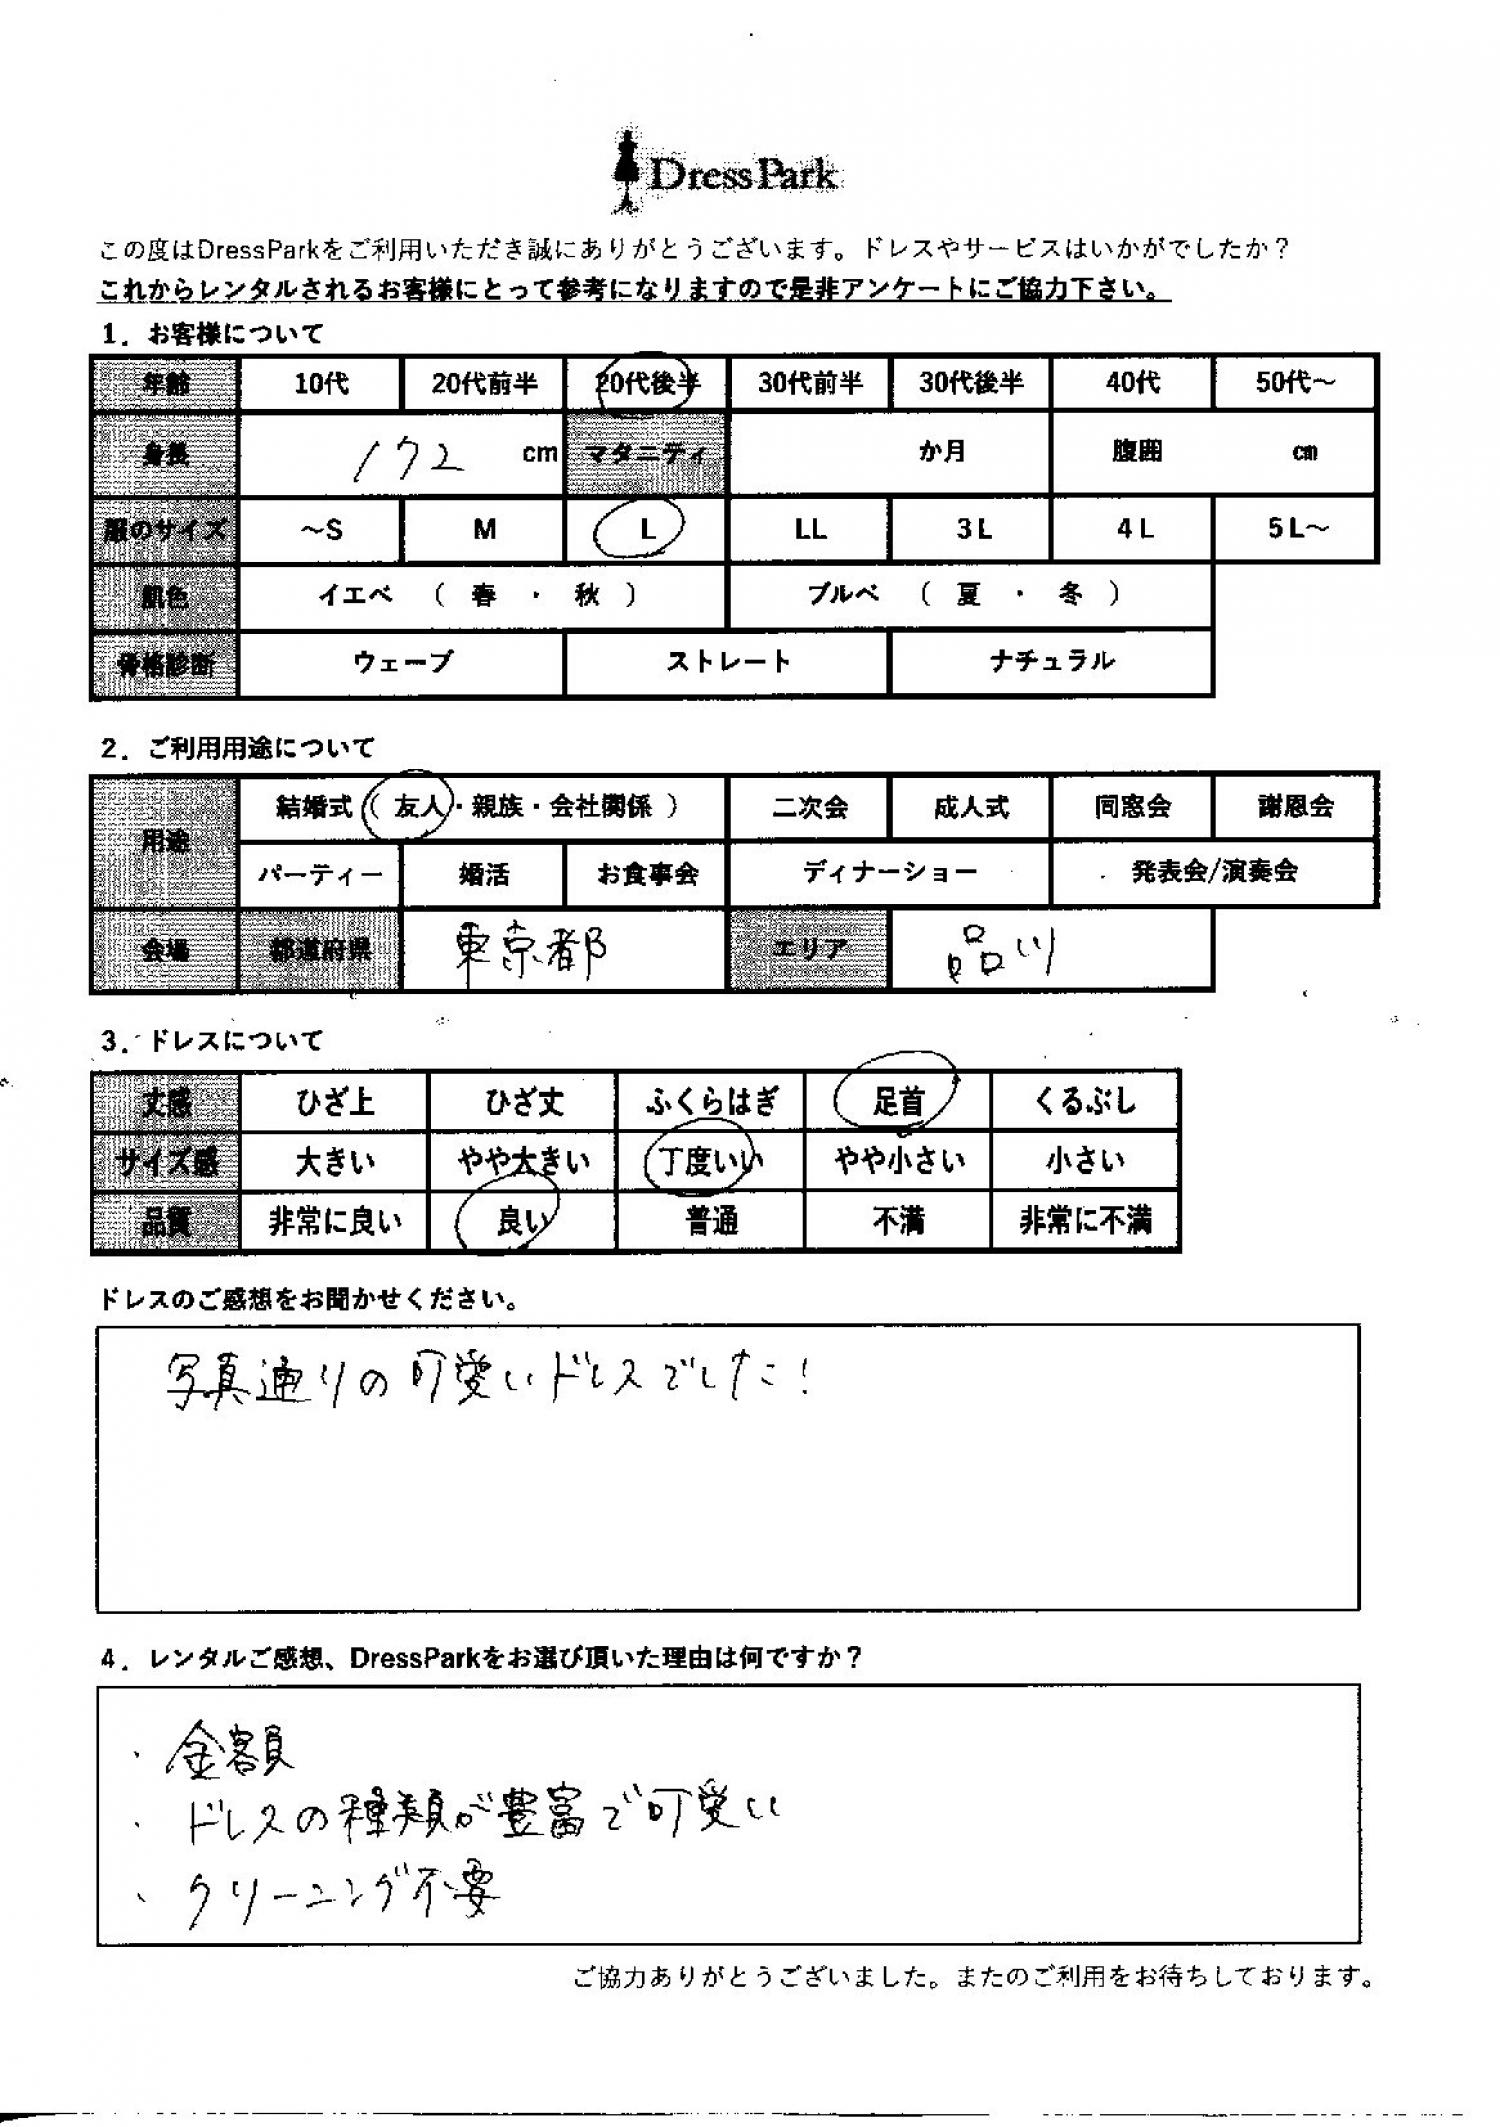 DressPark
この度はDressParkをご利用いただき誠にありがとうございます。ドレスやサービスはいかがでしたか？
これからレンタルされるお客様にとって参考になりますので是非アンケートにご協力下さい。
1．お客様について
年齢 10代 20代前半 20代後半 30代前半 30代後半 40代 50代～
身長 172 cm マタニティ か月 腹囲 cm
服のサイズ ～S M L LL 3L 4L 5L～
肌色 イエベ （ 春 ・ 秋 ） ブルベ （ 夏 ・ 冬 ）
骨格診断 ウェーブ ストレート ナチュラル
2．ご利用用途について
用途 結婚式（ 友人・親族・会社関係 ） 二次会 成人式 同窓会 謝恩会
パーティー 婚活 お食事会 ディナーショー 発表会/演奏会
会場 都道府県 東京都 エリア 品川
3．ドレスについて
丈感 ひざ上 ひざ丈 ふくらはぎ 足首 くるぶし
サイズ感 大きい やや大きい 丁度いい やや小さい 小さい
品質 非常に良い 良い 普通 不満 非常に不満
ドレスのご感想をお聞かせください。
写真通りの可愛いドレスでした！
4．レンタルご感想、DressParkをお選び頂いた理由は何ですか？
・金額
・ドレスの種類が豊富で可愛い
・クリーニング不要
ご協力ありがとうございました。またのご利用をお待ちしております。